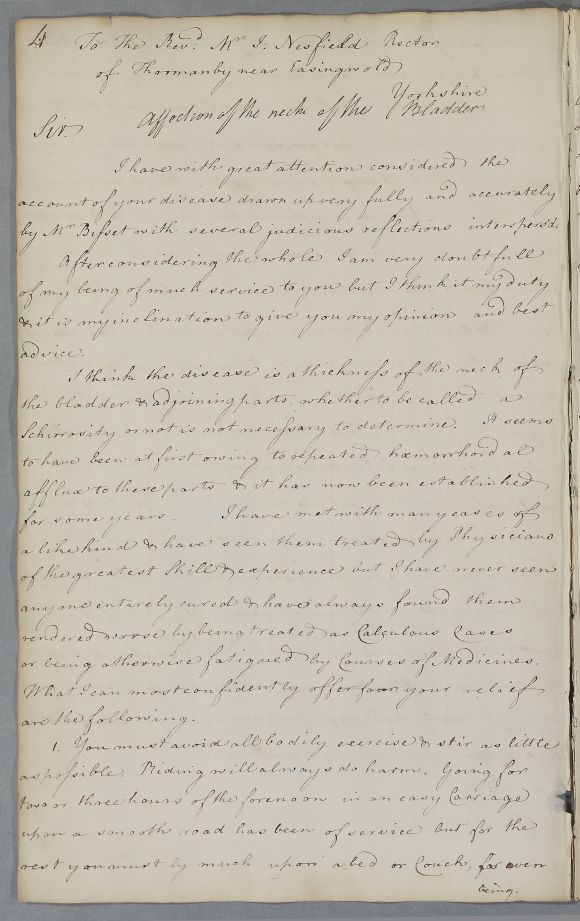 4
To The Revd. Mr J: Nesfield Rector
of Thormanby near Easingwold
Yorkshire
Affection of the neck of the Bladder
Sir.
I have with great attention considered the
account of your disease drawn up very fully and accurately
by Mr Bisset with several judicious reflections interspersd.
After considering the whole I am very doubtfull
of my being of much service to you but I think it my duty
& it is my inclination to give you my opinion and best
advice.
I think the disease is a thickness of the neck of
the bladder & adjoining parts, whether to be called a
Schirrosity or not is not necessary to determine. It seems
to have been at first owing to repeated hæmorrhoidal
afflux to these parts & it has now been established
for some years. I have met with many cases of
a like kind & have seen them treated by Physicians
of the greatest Skill & experience but I have never seen
any one entirely cured & have always found them
rendered worse by being treated as Calculous Cases
or being otherwise fatigued by Courses of Medicines.
What I can most confidently offer for your relief
are the following.
1. You must avoid all bodily exercise & stir as little
as possible. Riding will always do harm. Going for
two or three hours of the forenoon in an easy Carriage
upon a smooth road has been of service but for the
rest you must ly much upon a bed or Couch, for even
being.